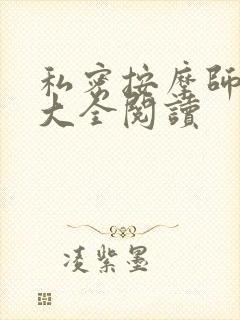 私密按摩師
大全閱讀
凌紫墨